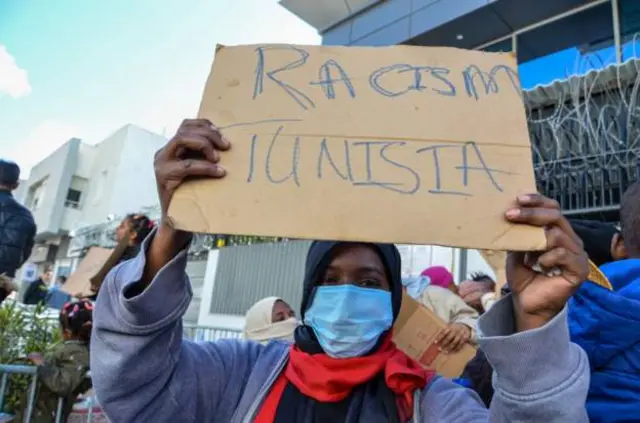 RACISM
TUNISIA